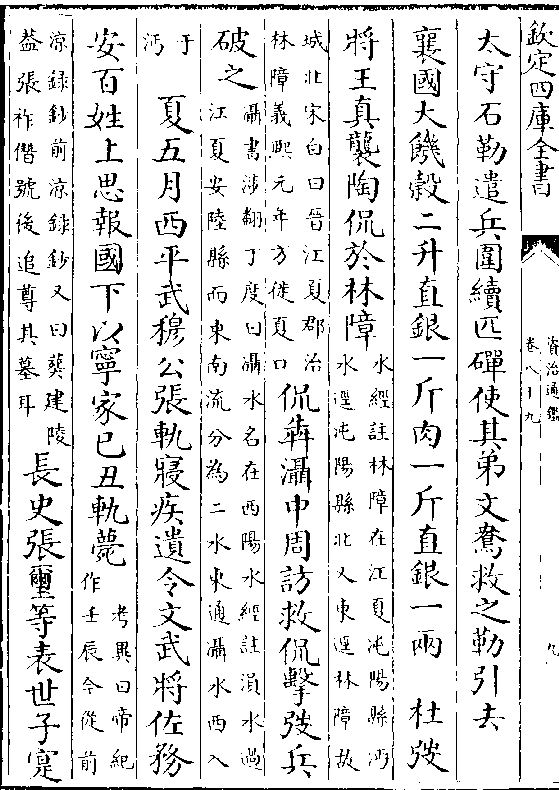 欽定四庫全書
資治通鑑
卷八十九
九
太守石勒遣兵圍續匹磾使其弟文鴦救之勒引去
襄國大饑穀二升直銀一斤肉一斤直銀一兩 杜弢
將王真襲陶侃於林障
水經註林障在江夏沌陽縣沔
水逕沌陽縣北又東逕林障故
城北宋白曰晉江夏郡治
林障義熙元年方徙夏口
侃犇灄中周訪救侃擊弢兵
破之
灄書涉翻丁度曰灄水名在西陽水經註溳水過
江夏安陸縣而東南流分為二水東通灄水西入
于
沔
夏五月西平武穆公張軌寢疾遺令文武將佐務
安百姓上思報國下以寧家巳丑軌薨
考異曰帝紀
作壬辰今從前
凉録鈔前凉録鈔又曰葬建陵
葢張祚僭號後追尊其墓耳
長史張璽等表世子寔